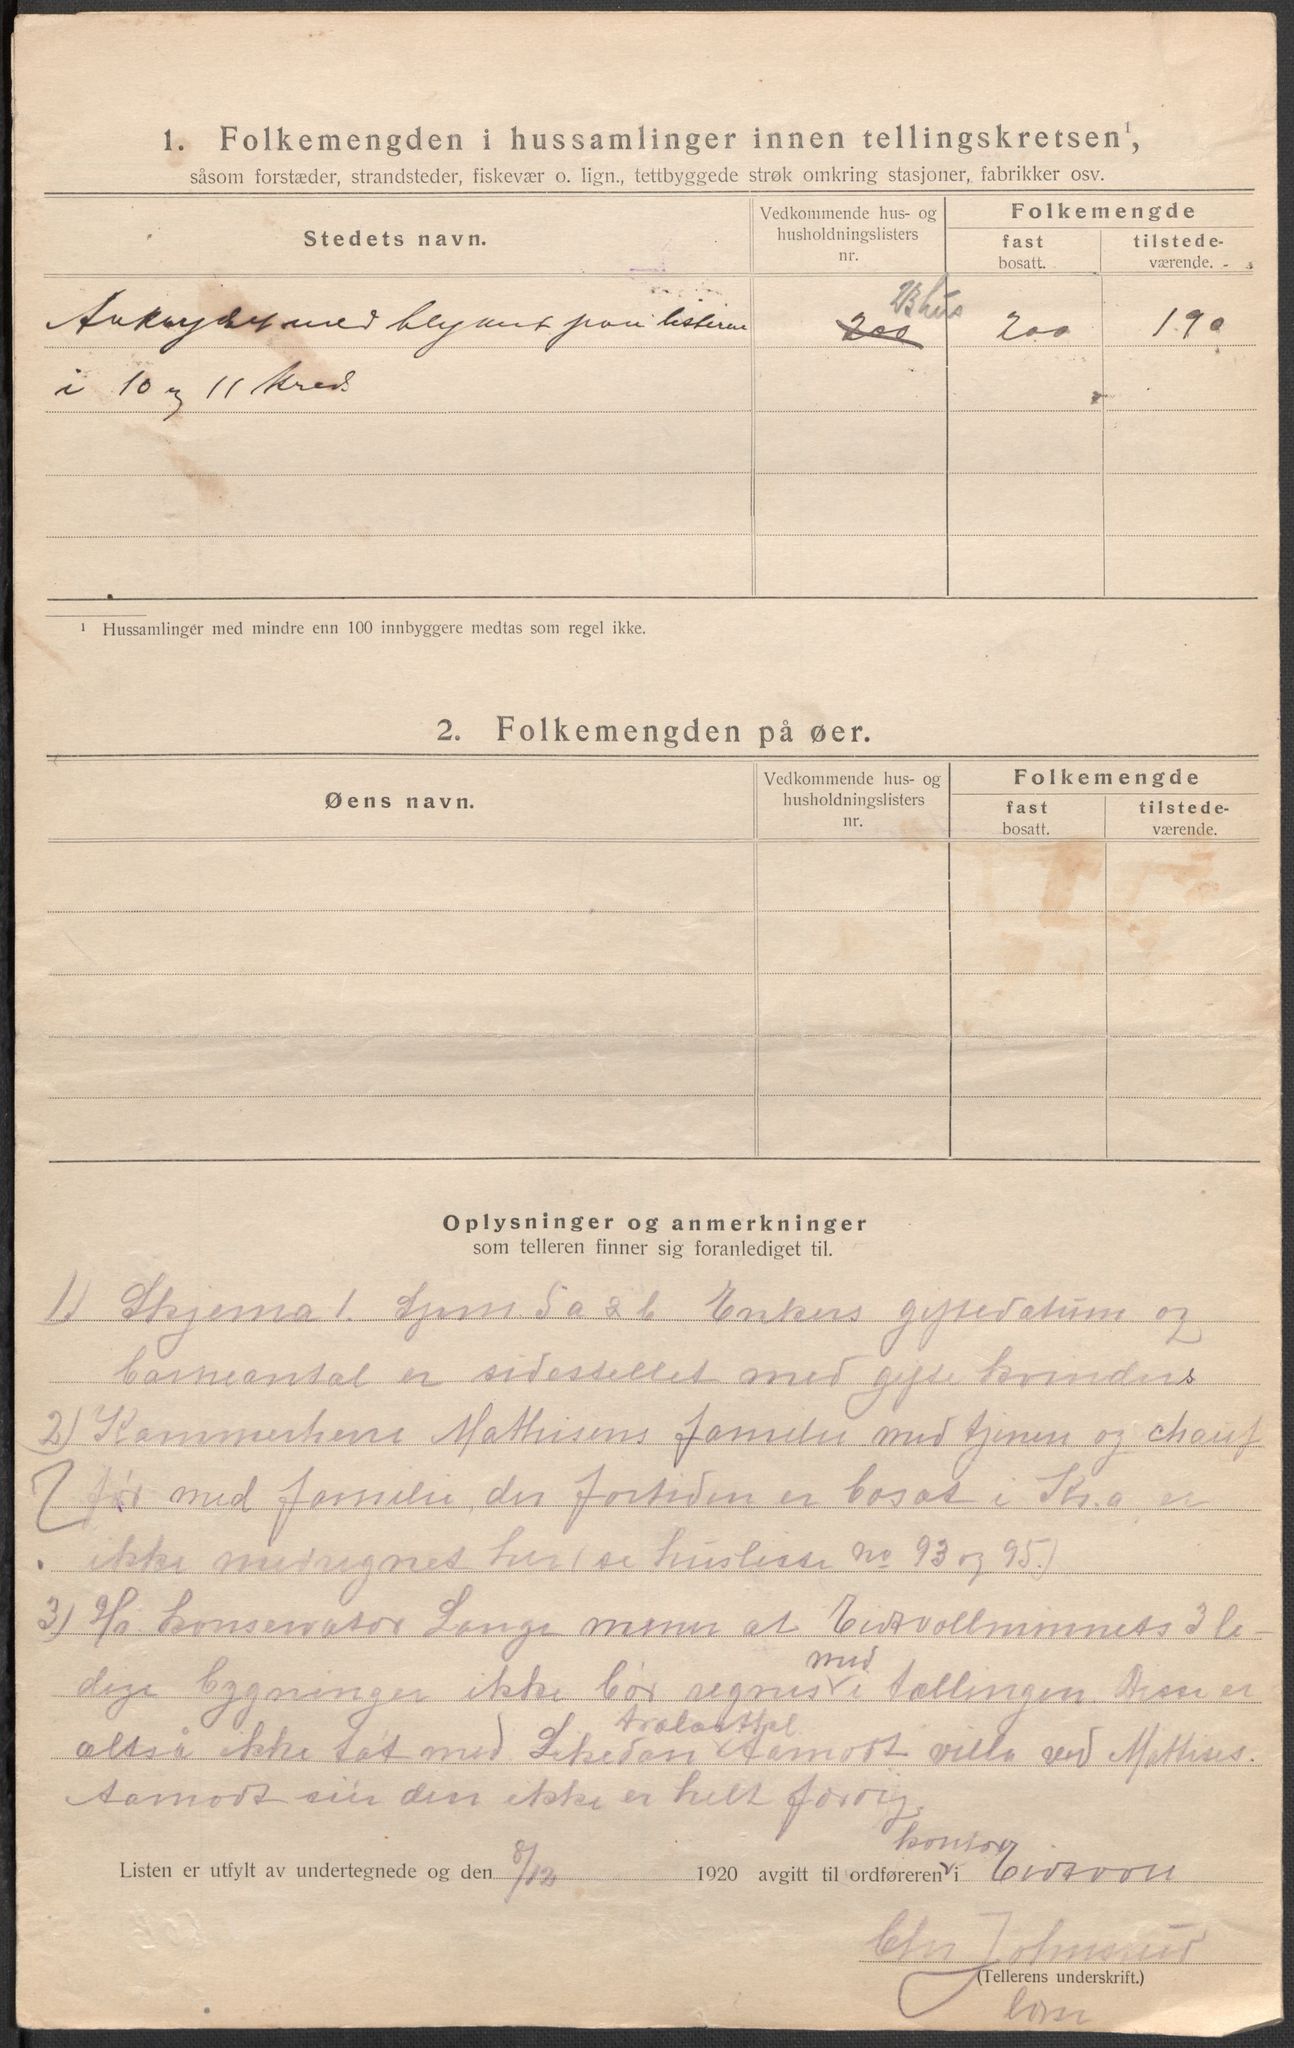 1. Folkemengden i hussamlinger innen tellingskretsen¹,
såsom forstæder, strandsteder, fiskevær o. lign., tettbyggede strøk omkring stasjoner, fabrikker osv.
Stedets navn.
Vedkommende hus- og husholdningslisters nr.
Folkemengde
fast bosatt.
tilstede-værende.
23 hus
Avkrydset med blyant paa listerne 200 200 190
i 10 og 11 kreds
¹ Hussamlinger med mindre enn 100 innbyggere medtas som regel ikke.
2. Folkemengden på øer.
Øens navn.
Vedkommende hus- og husholdningslisters nr.
Folkemengde
fast bosatt.
tilstede-værende.
Oplysninger og anmerkninger
som telleren finner sig foranlediget til.
1) Skjema 1. Spm. 5 a & b Enkers giftedatum og
barneantal er sidestillet med gifte kvinders
2) Kammerherre Mathisens familie med tjener og chauf
før med familie, der fortiden er bosat i Kr.a er
ikke medregnet her (se husliste no 93 og 95.)
3) Hr. konservator Lange mener at Eidsvollminnets 3 le-
dige bygninger ikke bør regnes med i tællingen. Disse er
altså ikke tat med Aamodt villa ved Mathises.
Aamodt den ikke er helt færdig.
Listen er utfylt av undertegnede og den 8/12 1920 avgitt til ordførerens kontor i Eidsvoll
Chr Johnsrud
(Tellerens underskrift.)